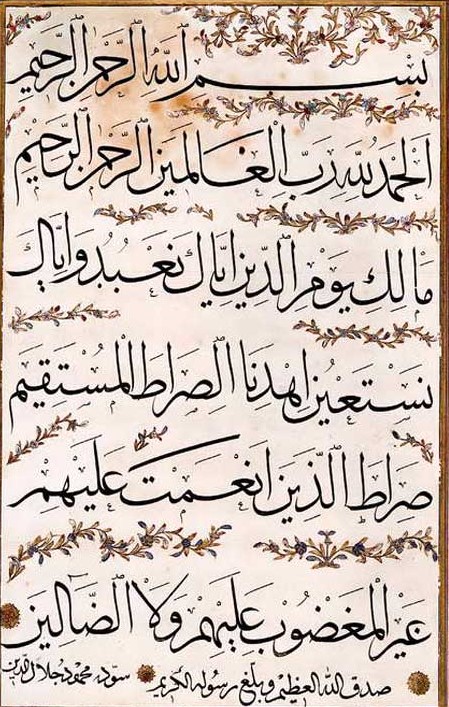 بسم الله الرحمن الرحيم
الحمد لله رب العالمين الرحمن الرحيم
مالك يوم الدين اياك نعبد واياك
نستعين اهدنا الصراط المستقيم
صراط الذين انعمت عليهم
غير المغضوب عليهم ولا الضالين
صدق الله العظيم وبلغ رسوله الكريم
سوّده محمود جلال الدين